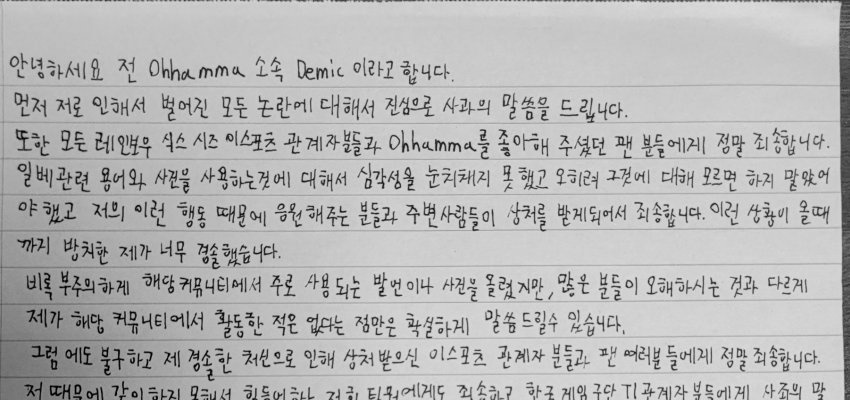 안녕하세요 전 Ohhamma 소속 Demic 이라고 합니다.
먼저 저로 인해서 벌어진 모든 논란에 대해서 진심으로 사과의 말씀을 드립니다.
또한 모든 레인보우 식스 시즈 이스포츠 관계자분들과 Ohhamma를 좋아해 주셨던 팬 분들에게 정말 죄송합니다.
일베관련 용어와 사진을 사용하는것에 대해서 심각성을 눈치채지 못했고 오히려 그것에 대해 모르면 하지 말았어
야 했고 저의 이런 행동 때문에 응원해주는 분들과 주변사람들이 상처를 받게되어서 죄송합니다. 이런 상황이 올때
까지 방치한 제가 너무 경솔했습니다.
비록 부주의하게 해당커뮤니티에서 주로 사용되는 발언이나 사진을 올렸지만, 많은 분들이 오해하시는 것과 다르게
제가 해당 커뮤니티에서 활동한 적은 없다는 점만은 확실하게 말씀드릴수 있습니다.
그럼에도 불구하고 제 경솔한 처신으로 인해 상처받으신 이스포츠 관계자 분들과 팬 여러분들에게 정말 죄송합니다.
저 때문에 같이 하지 못해서 힘들어하는 저희 팀원에게도 죄송하고 한국 게임구단 T1관계자분들에게 사죄의 말